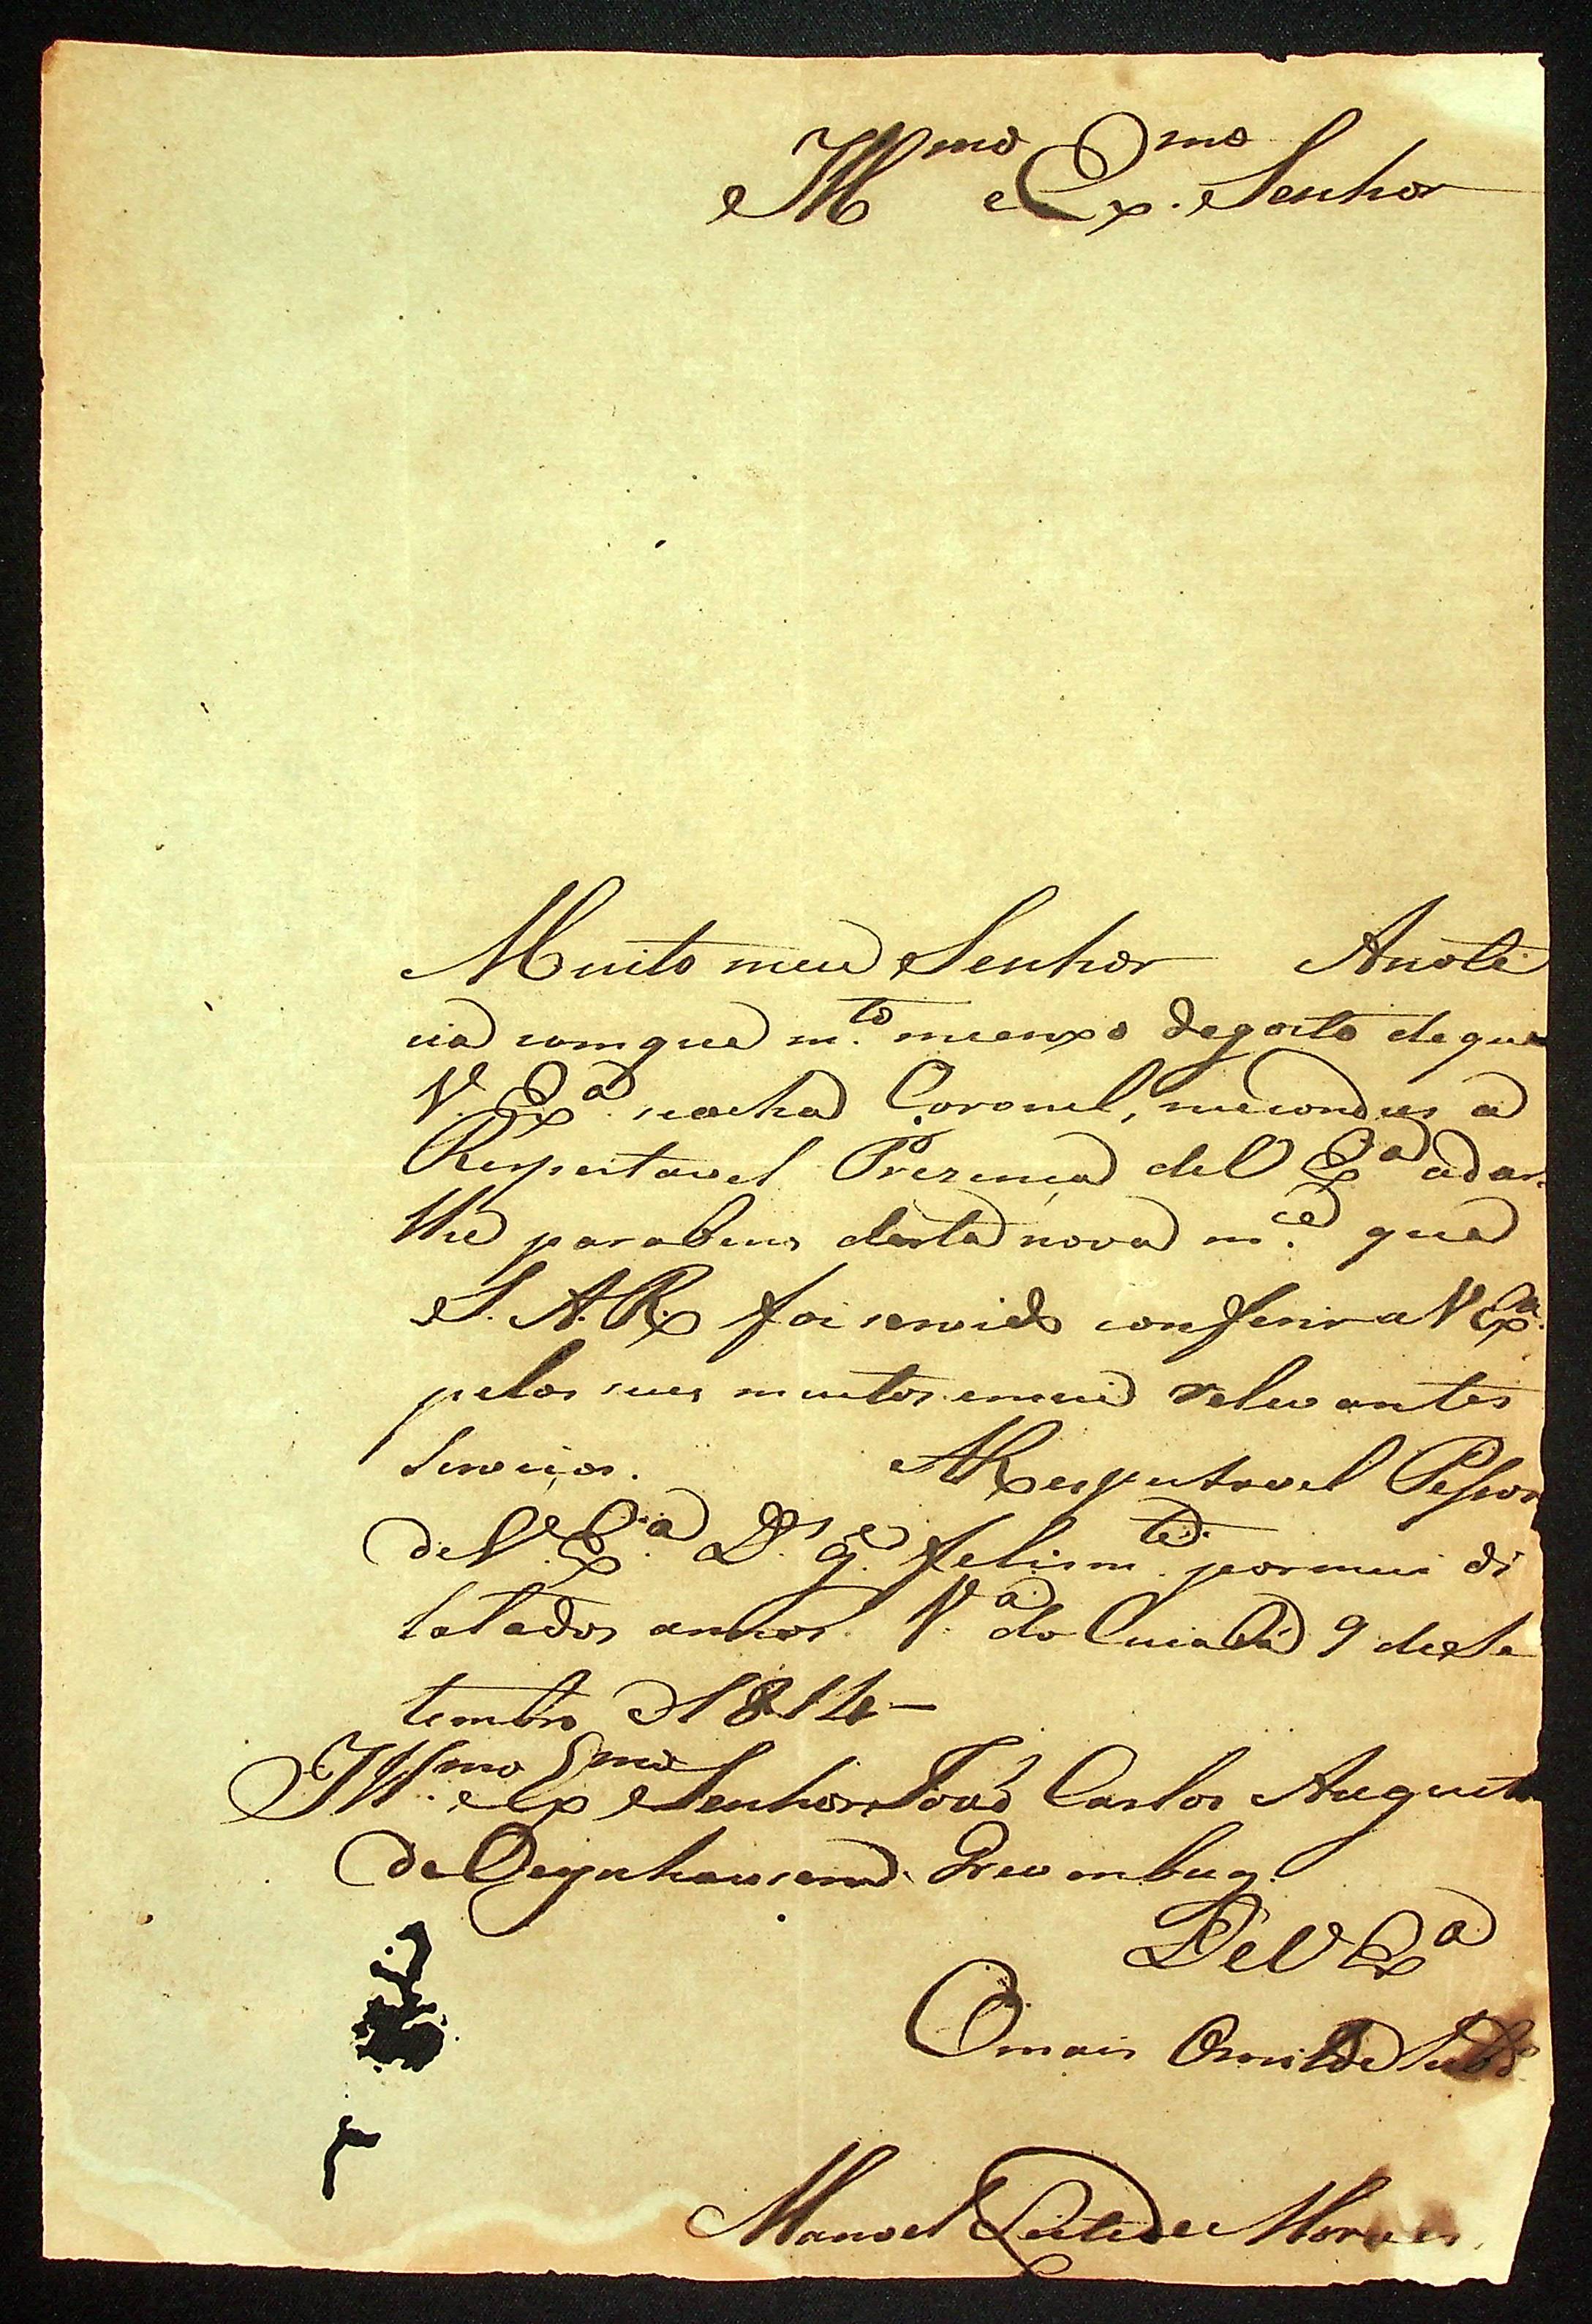 Illmo Exmo Senhor
Muito meu Senhor Anoti
cia comque m.to meenxo degosto deque
V. Exa. seacha Coronel, meconduz a
Respeitavel Prezença deV Exa adar
lhe parabens desta nova m.ce que
S. A. R. foi servido conferir a V Exa.
pelos seus muitos emui relevantes
servicos. ARespeitavel Pessoa
de V. Exa. D.s g.e felism.te pormui di
latados annos. V.a do Cuiabá 9 deSe
tembro d 1814 –
Illmo. Exmo Senhor João Carlos Augusto
de Oeynhausen Grevenbug.
DeV Exa
Omais Omilde Subd.
Manoel Leite de Moraes.